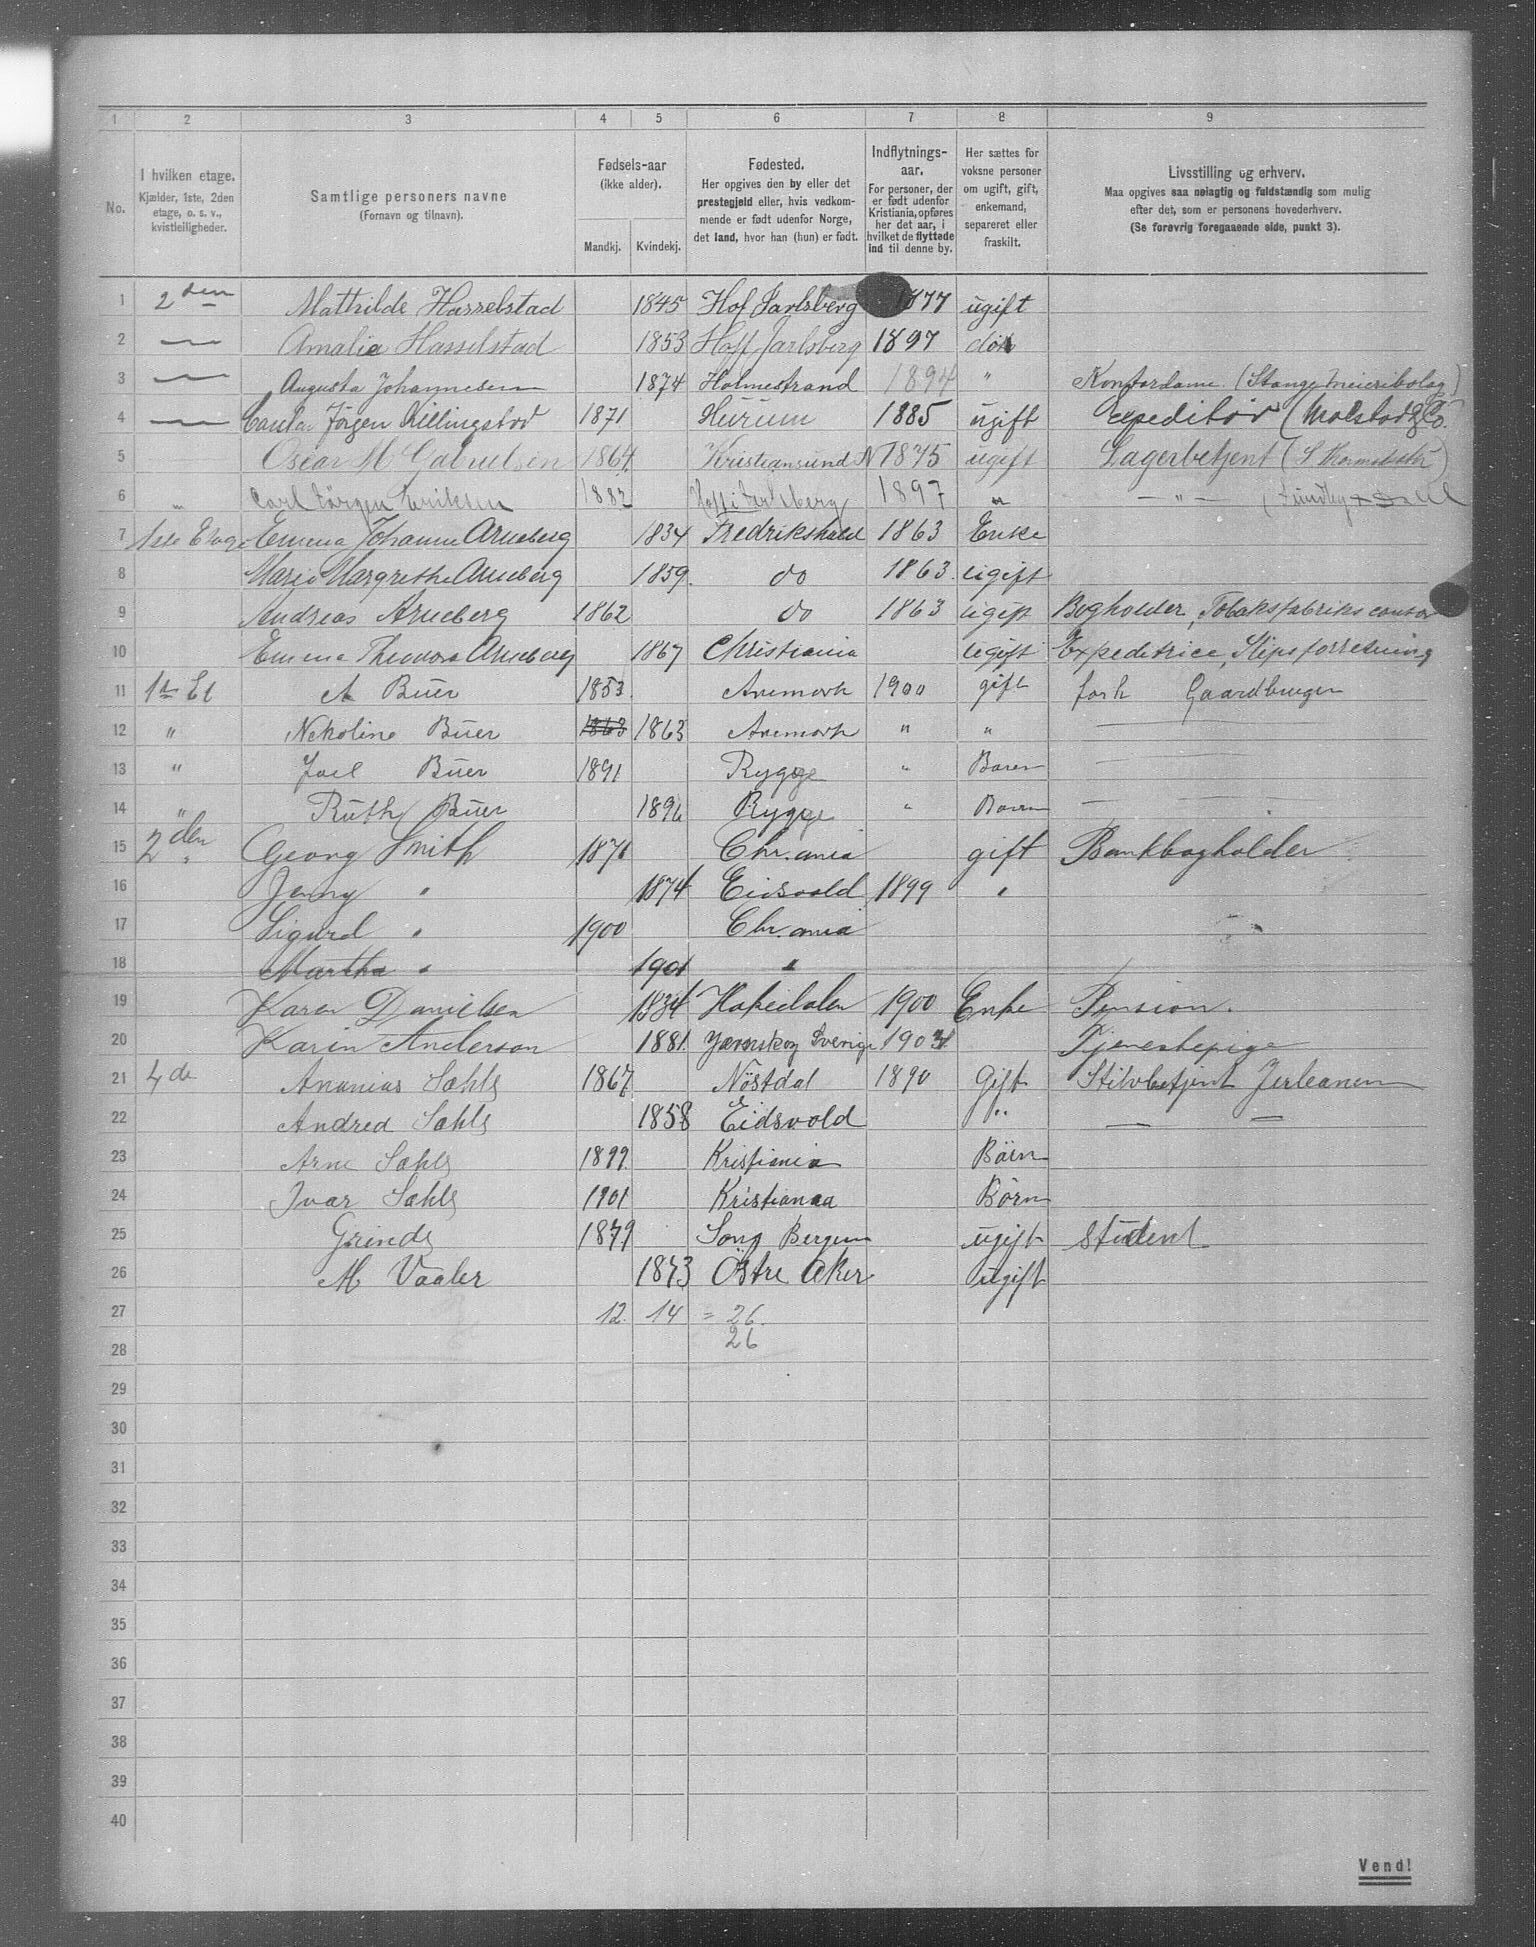 1 2 3 4 5 6 7 8 9
No. I hvilken etage. Kjælder, 1ste, 2den etage, o. s. v., kvistleiligheder. Samtlige personers navne (Fornavn og tilnavn). Fødsels-aar (ikke alder). Mandkj. Kvindekj. Fødested. Her opgives den by eller det prestegjeld eller, hvis vedkommende er født udenfor Norge, det land, hvor han (hun) er født. Indflytnings-aar. For personer, der er født udenfor Kristiania, opføres her det aar, i hvilket de flyttede ind til denne by. Her sættes for voksne personer om ugift, gift, enkemand, separeret eller fraskilt. Livsstilling og erhverv. Maa opgives saa nøiagtig og fuldstændig som mulig efter det, som er personens hovederhverv. (Se forøvrig foregaaende side, punkt 3).
1 2den Mathilde Hasselstad 1845 Hof Jarlsberg 1877 ugift
2 — Amalia Hasselstad 1853 Hoff Jarlsberg 1897 do
3 — Augusta Johannesen 1874 Holmestrand 1894 " Kontordame (Stange meieribolag)
4 — Jörgen Killingstad 1871 Hurum 1885 ugift Expeditör (Molstad & Co.
5 Oscar M Gabrielsen 1864 Kristiansund N 1875 ugift Lagerbetjent
6 " Carl Jörgen Eriksen 1882 Hoff i Jarlsberg 1897 " — " — (Lundby & Dahl
7 1ste Etage Emma Johanne Arneberg 1834 Fredrikshald 1863 Enke
8 Marie Margrethe Arneberg 1859. do 1863. ugift
9 Andreas Arneberg 1862 do 1863 ugift Bogholder, Tobaksfabriks contor
10 Emma Theodora Arneberg 1867 Christiania ugift Expeditrice, Slipsforretning
11 1ste Et A Buer 1853. Aremark 1900 gift forh Gaardbruger
12 " Nekoline Buer 1863 1863 Aremark " "
13 " Joel Buer 1891 Rygge " Barn
14 " Ruth Buer 1896 Rygge " Barn
15 2den " Georg Smith 1871 Chr.ania gift Bankbogholder
16 Jenny " 1874 Eidsvold 1899 "
17 Sigurd " 1900 Chr.ania
18 Martha " 1901 "
19 Karen Danielsen 1834 Hakedalen 1900 Enke Pension.
20 Karin Anderson 1881. Jærnskog Sverige 1901 Tjenestepige
21 4de Ananias Sæhle 1867 Nöstdal 1890 Gift
22 Andrea Sæhle 1858 Eidsvold " — —
23 Arne Sæhle 1899. Kristiania Börn
24 Ivar Sæhle 1901 Kristiania Börn
25 Grinde 1879 Bergen ugift Student
26 M Vaaler 1873 Östre Aker ugift
27 12. 14 = 26.
28 26
29
30
31
32
33
34
35
36
37
38
39
40
Vend!